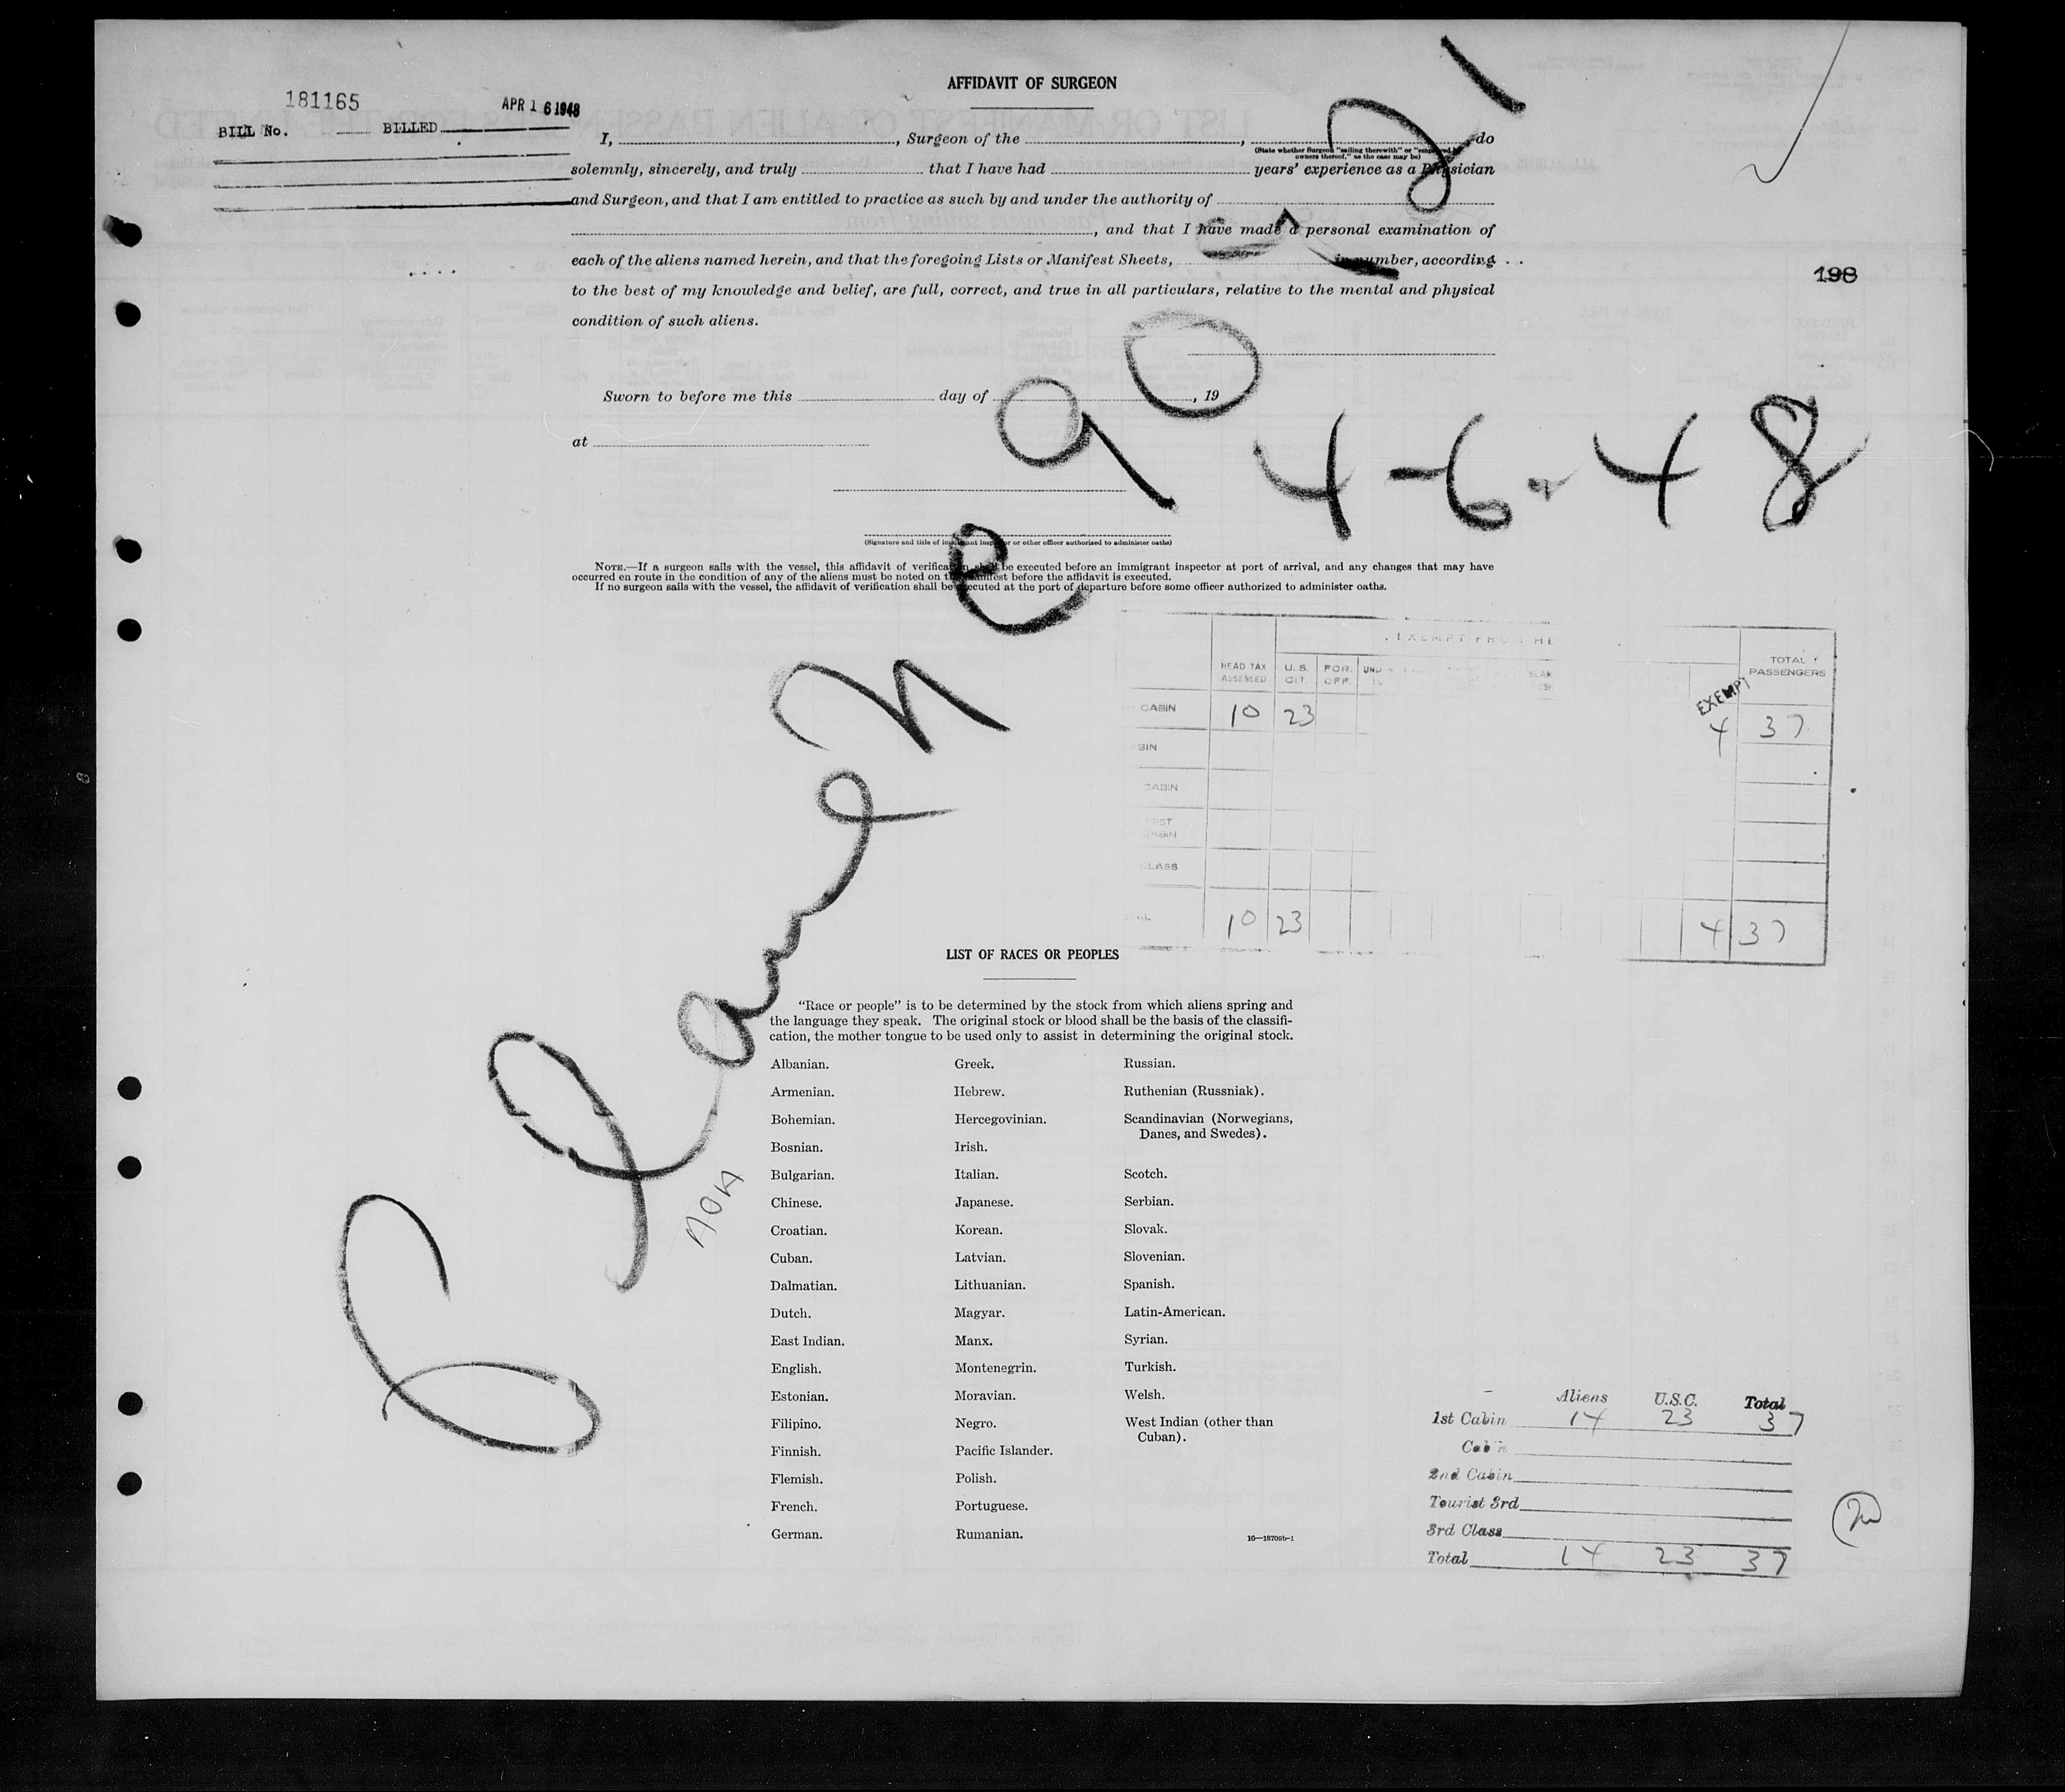 AFFIDAVIT OF SURGEON
181165
APR 16 1948
BILL No. BILLED
I, , Surgeon of the , do
(State whether Surgeon "sailing therewith" or "employed by owners thereof," as the case may be)
solemnly, sincerely, and truly that I have had years' experience as a Physician
and Surgeon, and that I am entitled to practice as such by and under the authority of
, and that I have made a personal examination of
each of the aliens named herein, and that the foregoing Lists or Manifest Sheets, in number, according
to the best of my knowledge and belief, are full, correct, and true in all particulars, relative to the mental and physical
condition of such aliens.
198
Sworn to before me this day of , 19
at
4-6-48
(Signature and title of immigrant inspector or other officer authorized to administer oaths)
NOTE.—If a surgeon sails with the vessel, this affidavit of verification shall be executed before an immigrant inspector at port of arrival, and any changes that may have
occurred en route in the condition of any of the aliens must be noted on the manifest before the affidavit is executed.
If no surgeon sails with the vessel, the affidavit of verification shall be executed at the port of departure before some officer authorized to administer oaths.
EXEMPT FROM HE
HEAD TAX ASSESSED U. S. CIT. FOR. OFF. EXEMPT TOTAL PASSENGERS
CABIN 10 23 4 37
CABIN
10 23 4 37
LIST OF RACES OR PEOPLES
"Race or people" is to be determined by the stock from which aliens spring and
the language they speak. The original stock or blood shall be the basis of the classifi-
cation, the mother tongue to be used only to assist in determining the original stock.
Albanian. Greek. Russian.
Armenian. Hebrew. Ruthenian (Russniak).
Bohemian. Hercegovinian. Scandinavian (Norwegians,
Danes, and Swedes).
Bosnian. Irish.
Bulgarian. Italian. Scotch.
Chinese. Japanese. Serbian.
Croatian. Korean. Slovak.
Cuban. Latvian. Slovenian.
Dalmatian. Lithuanian. Spanish.
Dutch. Magyar. Latin-American.
East Indian. Manx. Syrian.
English. Montenegrin. Turkish.
Estonian. Moravian. Welsh.
Filipino. Negro. West Indian (other than
Cuban).
Finnish. Pacific Islander.
Flemish. Polish.
French. Portuguese.
German. Rumanian.
16—18709b-1
Aliens U.S.C. Total
1st Cabin 14 23 37
Cabin
2nd Cabin
Tourist 3rd
3rd Class
Total 14 23 37